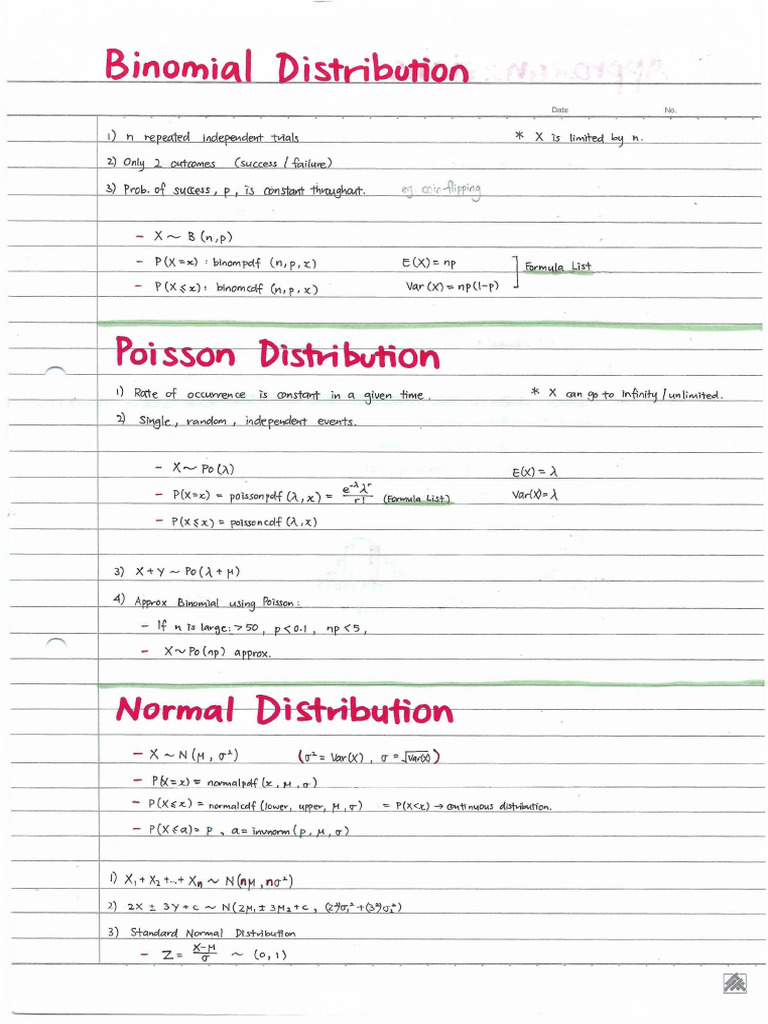 Binomial Distribution
Date No.
1) n repeated independent trials * X is limited by n.
2) Only 2 outcomes (success / failure)
3) Prob. of success, p, is constant throughout. eg. coin-flipping
- X ~ B (n, p)
- P(X=x) : binompdf (n, p, x) E(X) = np Formula List
- P(X≤x) : binomcdf (n, p, x) Var (X) = np(1-p)
Poisson Distribution
1) Rate of occurrence is constant in a given time. * X can go to infinity / unlimited.
2) Single, random, independent events.
- X ~ Po(λ) E(X) = λ
- P(X=x) = poissonpdf (λ, x) = e^-λ λ^r / r! (Formula List) Var(X) = λ
- P(X≤x) = poissoncdf (λ, x)
3) X + Y ~ Po(λ + μ)
4) Approx Binomial using Poisson:
- If n is large: > 50, p < 0.1, np < 5,
- X ~ Po(np) approx.
Normal Distribution
- X ~ N(μ, σ²) (σ² = Var(X), σ = √Var(X))
- P(X=x) = normalpdf (x, μ, σ)
- P(X≤x) = normalcdf (lower, upper, μ, σ) = P(X<x) → continuous distribution.
- P(X≤a) = p, a = invnorm (p, μ, σ)
1) X₁ + X₂ +...+ Xn ~ N(nμ, nσ²)
2) 2X ± 3Y + c ~ N(2μ₁ ± 3μ₂ + c, (2²)σ₁² + (3²)σ₂²)
3) Standard Normal Distribution
- Z = X-μ / σ ~ (0, 1)